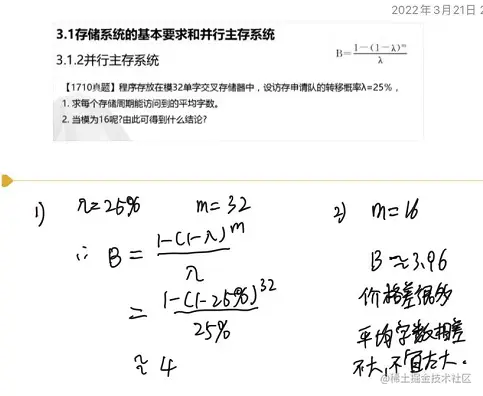 2022年3月21日 2
3.1存储系统的基本要求和并行主存系统
3.1.2并行主存系统
B=\frac{1-(1-λ)^m}{λ}
【1710真题】程序存放在模32单字交叉存储器中，设访存申请队的转移概率λ=25%，
1. 求每个存储周期能访问到的平均字数。
2. 当模为16呢?由此可得到什么结论?
1) λ=25% m=32
∵ B = \frac{1-(1-λ)^m}{λ}
= \frac{1-(1-25%)^{32}}{25%}
≈ 4
2) m=16
B≈3.96
价格差很多
平均字数相差
不大,不宜太大.
@稀土掘金技术社区